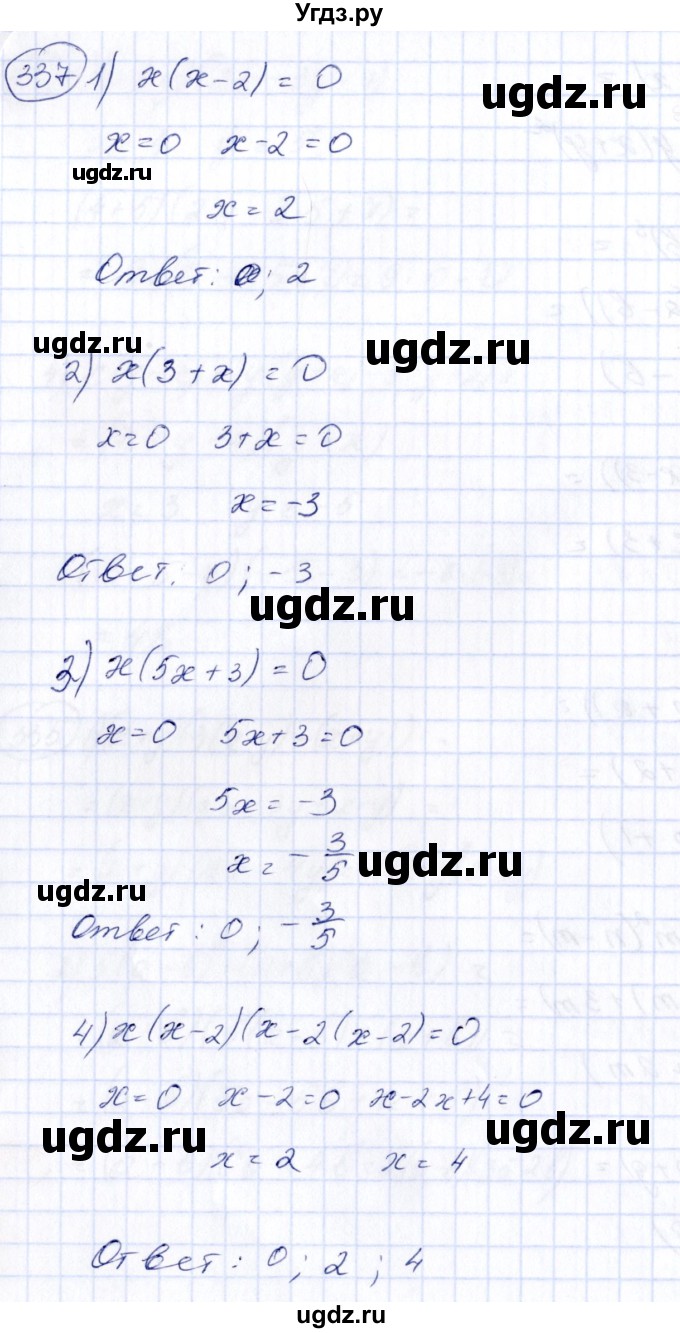 Угдз.ру
337 1) x(x-2) = 0
ugdz.ru
x=0 x-2=0
ugdz.ru
x=2
Ответ: 0; 2
ugdz.ru
ugdz.ru
2) x(3+x) = 0
x=0 3+x=0
x=-3
Ответ: 0; -3
ugdz.ru
3) x(5x+3) = 0
x=0 5x+3=0
5x=-3
x= -3/5
ugdz.ru
ugdz.ru
Ответ: 0; -3/5
4) x(x-2)(x-2(x-2)=0
x=0 x-2=0 x-2x+4=0
ugdz.ru
ugdz.ru
x=2 x=4
Ответ: 0; 2; 4
ugdz.ru